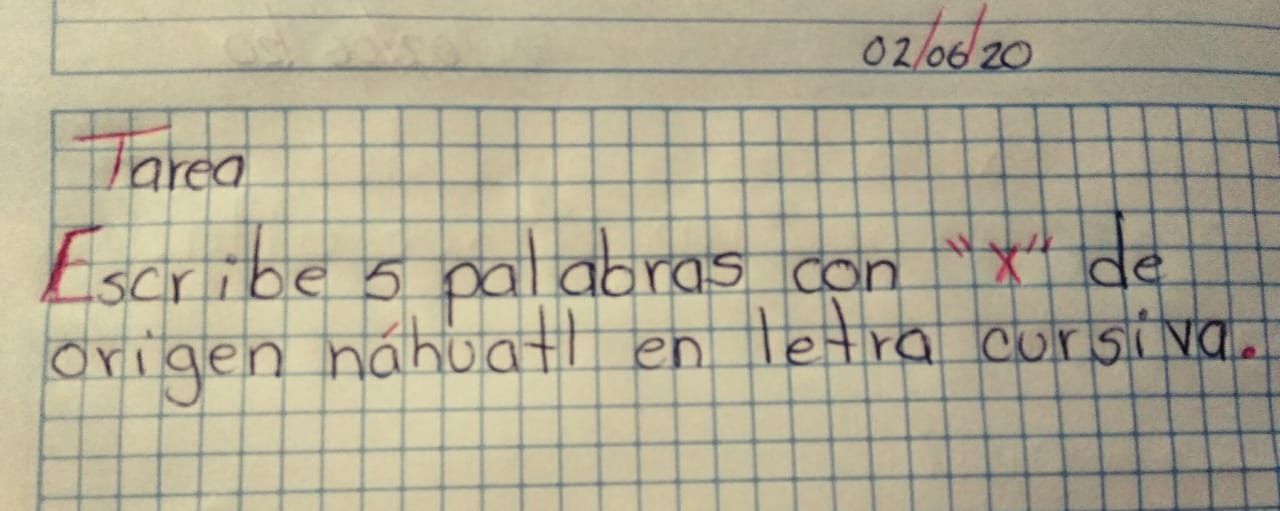 02/06/20
Tarea
Escribe 5 palabras con "x" de
origen náhuatl en letra cursiva.